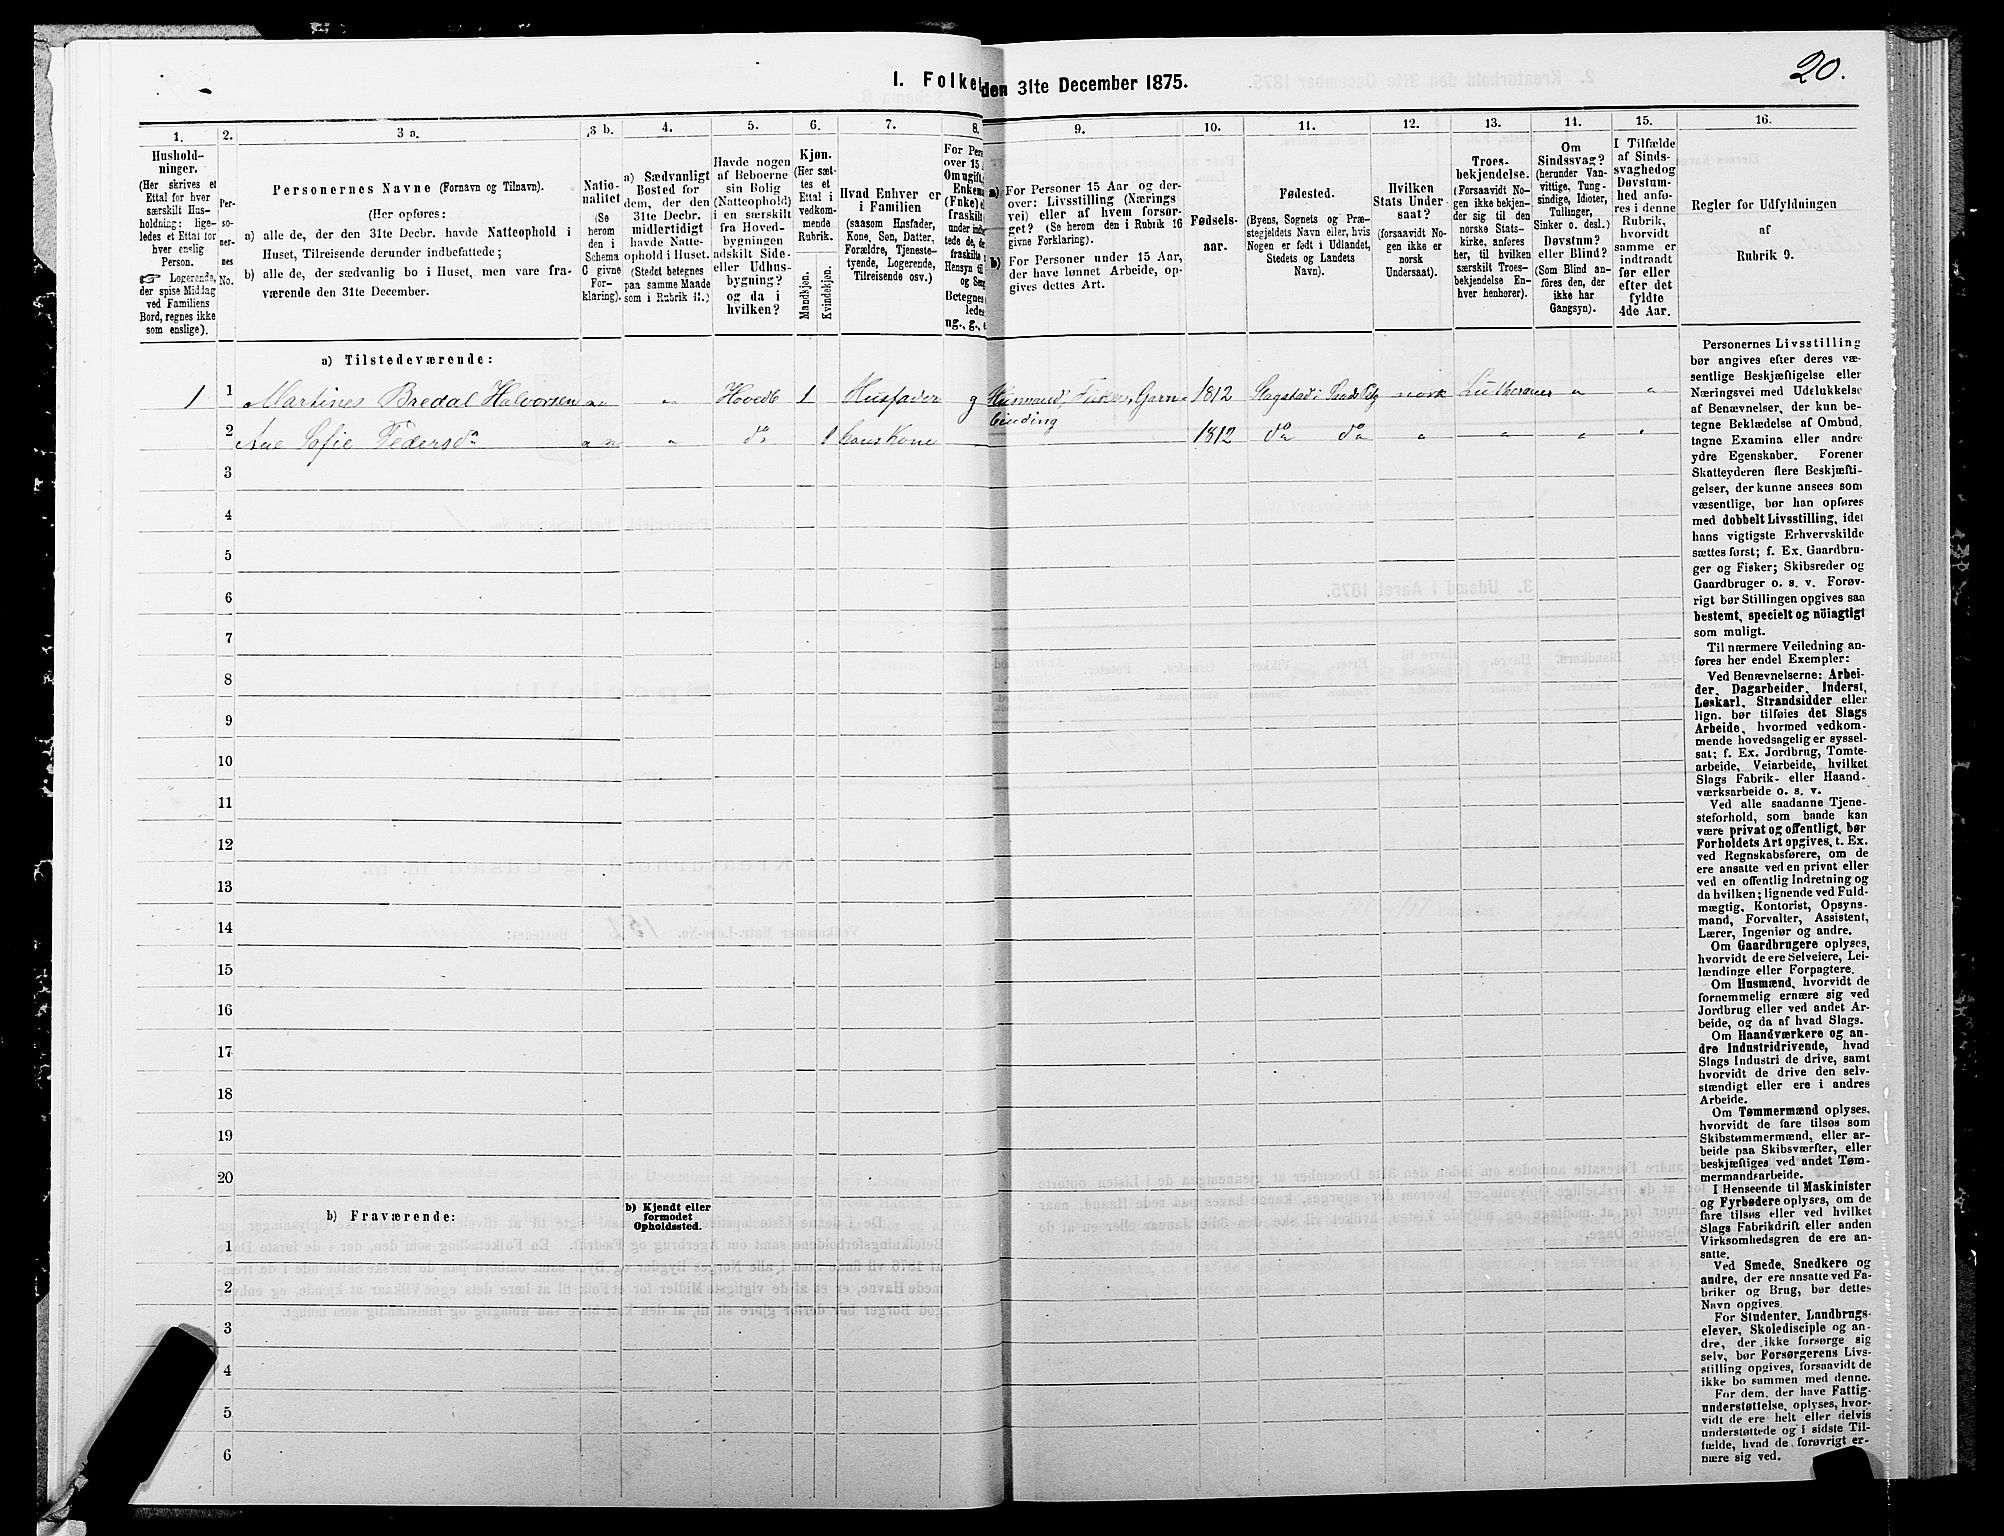 20.
I. Folket den 31te December 1875.
1. 2. 3 a. 3 b. 4. 5. 6. 7. 8. 9. 10. 11. 12. 13. 14. 15. 16.
Hushold-
ninger.
(Her skrives et
Ettal for hver
særskilt Hus-
holdning; lige-
ledes et Ettal for
hver enslig
Person.
☞ Logerende,
der spise Middag
ved Familiens
Bord, regnes ikke
som enslige).
Per-
so-
ner-
nes
No.
Personernes Navne (Fornavn og Tilnavn).
(Her opføres:
a) alle de, der den 31te Decbr. havde Natteophold i
Huset, Tilreisende derunder indbefattede;
b) alle de, der sædvanlig bo i Huset, men vare fra-
værende den 31te December.
Natio-
nalitet
(Se
herom
den i
Schema
C givne
For-
klaring).
a) Sædvanligt
Bosted for
dem, der den
31te Decbr.
midlertidigt
havde Natte-
ophold i Huset.
(Stedet betegnes
paa samme Maade
som i Rubrik 11.)
Havde nogen
af Beboerne
sin Bolig
(Natteophold)
i en særskilt
fra Hoved-
bygningen
adskilt Side-
eller Udhus-
bygning?
og da i
hvilken?
Kjøn.
(Her sæt-
tes et
Ettal i
vedkom-
mende
Rubrik.
Mandkjøn.
Kvindekjøn.
Hvad Enhver er
i Familien
(saasom Husfader,
Kone, Søn, Datter,
Forældre, Tjeneste-
tyende, Logerende,
Tilreisende osv.)
For Pers
over 15
Om ugift,
Enkem
(Fnke) e
fraskilt
under indbe
tede de, de
fraskilte
Hensyn til
og Sen
Betegnes
ledes
ug., g., e
a) For Personer 15 Aar og der-
over: Livsstilling (Nærings
vei) eller af hvem forsør-
get? (Se herom den i Rubrik 16
givne Forklaring).
b) For Personer under 15 Aar,
der have lønnet Arbeide, op-
gives dettes Art.
Fødsels-
aar.
Fødested.
(Byens, Sognets og Præ-
stegjeldets Navn eller, hvis
Nogen er født i Udlandet,
Stedets og Landets
Navn).
Hvilken
Stats Under-
saat?
(forsaavidt No-
gen ikke er
norsk
Undersaat).
Troes-
bekjendelse.
(Forsaavidt No-
gen ikke bekjen-
der sig til den
norske Stats-
kirke, anføres
her, til hvilken
særskilt Troes-
bekjendelse En-
hver henhører).
Om
Sindssvag?
(herunder Van-
vittige, Tung-
sindige, Idioter,
Tullinger,
Sinker o. desl.)
Døvstum?
eller Blind?
(Som Blind an-
føres den, der
ikke har
Gangsyn).
I Tilfælde
af Sinds-
svaghed og
Døvstum-
hed anfø-
res i denne
Rubrik,
hvorvidt
samme er
indtraadt
før eller
efter det
fyldte
4de Aar.
Regler for Udfyldningen
af
Rubrik 9.
a) Tilstedeværende:
1 1 Martines Bredal Halvorsen „ „ Hovedb 1 Husfader g Husmand, Fisker, Garn- 1812 Slagstad i Sands norsk Lutheraner „ „
binding
2 Ane Sofie Peders d: „ n „ do 1 hans Kone 1812 do do „ „ „ „
3
4
5
6
7
8
9
10
11
12
13
14
15
16
17
18
19
20
b) Fraværende:
b) Kjendt eller
formodet
Opholdssted.
1
2
3
4
5
6
Personernes Livsstilling
bør angives efter deres væ-
sentlige Beskjæftigelse eller
Næringsvei med Udelukkelse
af Benævnelser, der kun be-
tegne Beklædelse af Ombud,
tagne Examina eller andre
ydre Egenskaber. Forener
Skatteyderen flere Beskjæfti-
gelser, der kunne ansees som
væsentlige, bør han opføres
med dobbelt Livsstilling, idet
hans vigtigste Erhvervskilde
sættes først; f. Ex. Gaardbru-
ger og Fisker; Skibsreder og
Gaardbruger o. s. v. Forøv-
rigt bør Stillingen opgives saa
bestemt, specielt og nöiagtigt
som muligt.
Til nærmere Veiledning an-
føres her endel Exempler:
Ved Benævnelserne: Arbei-
der, Dagarbeider, Inderst,
Løskarl, Strandsidder eller
lign. bør tilføies det Slags
Arbeide, hvormed vedkom-
mende hovedsagelig er syssel-
sat; f. Ex. Jordbrug, Tomte-
arbeide, Veiarbeide, hvilket
Slags Fabrik- eller Haand-
værksarbeide o. s. v.
Ved alle saadanne Tjene-
steforhold, som baade kan
være privat og offentligt, bør
Forholdets Art opgives, t. Ex.
ved Regnskabsførere, om de
ere ansatte ved en privat eller
ved en offentlig Indretning og
da hvilken; lignende ved Fuld-
mægtig, Kontorist, Opsyns-
mand, Forvalter, Assistent,
Lærer, Ingeniør og andre.
Om Gaardbrugere oplyses,
hvorvidt de ere Selveiere, Lei-
lændinge eller Forpagtere.
Om Husmænd, hvorvidt de
fornemmelig ernære sig ved
Jordbrug eller ved andet Ar-
beide, og da af hvad Slags.
Om Haandværkere og an-
dre Industridrivende, hvad
Slags Industri de drive, samt
hvorvidt de drive den selv-
stændigt eller ere i andres
Arbeide.
Om Tømmermænd oplyses,
hvorvidt de fare tilsøs som
Skibstømmermænd, eller ar-
beide paa Skibsværfter, eller
beskjæftiges ved andet Tøm-
mermandsarbeide.
I Henseende til Maskinister
og Fyrbødere oplyses, om de
fare tilsøs eller ved hvilket
Slags Fabrikdrift eller anden
Virksomhedsgren de ere an-
satte.
Ved Smede, Snedkere og
andre, der ere ansatte ved Fa-
briker og Brug, bør dettes
Navn opgives.
For Studenter, Landbrugs-
elever, Skoledisciple og an-
dre, der ikke forsørge sig
selv, bør Forsørgerens Livs-
stilling opgives, forsaavidt de
ikke bo sammen med denne.
For dem, der have Fattig-
understøttelse, oplyses, hvor-
vidt de ere helt eller delvis
understøttede og i sidste Til-
fælde, hvad de forøvrigt er-
nære sig ved.